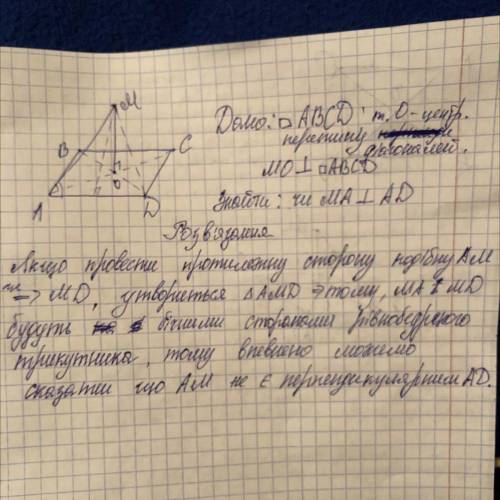 M
Дано: □ABCD: т. O - центр.
B C
перетину
діагоналей.
MO⊥ □ABCD
O
A D
Знайти: чи MA⊥AD
Розв'язання
Якщо провести протилежну сторону подібну AM
=> MD, утвориться △AMD тому, MA і MD
будуть бічними сторонами рівнобедреного
трикутника, тому впевнено можемо
сказати що AM не є перпендикулярним AD.